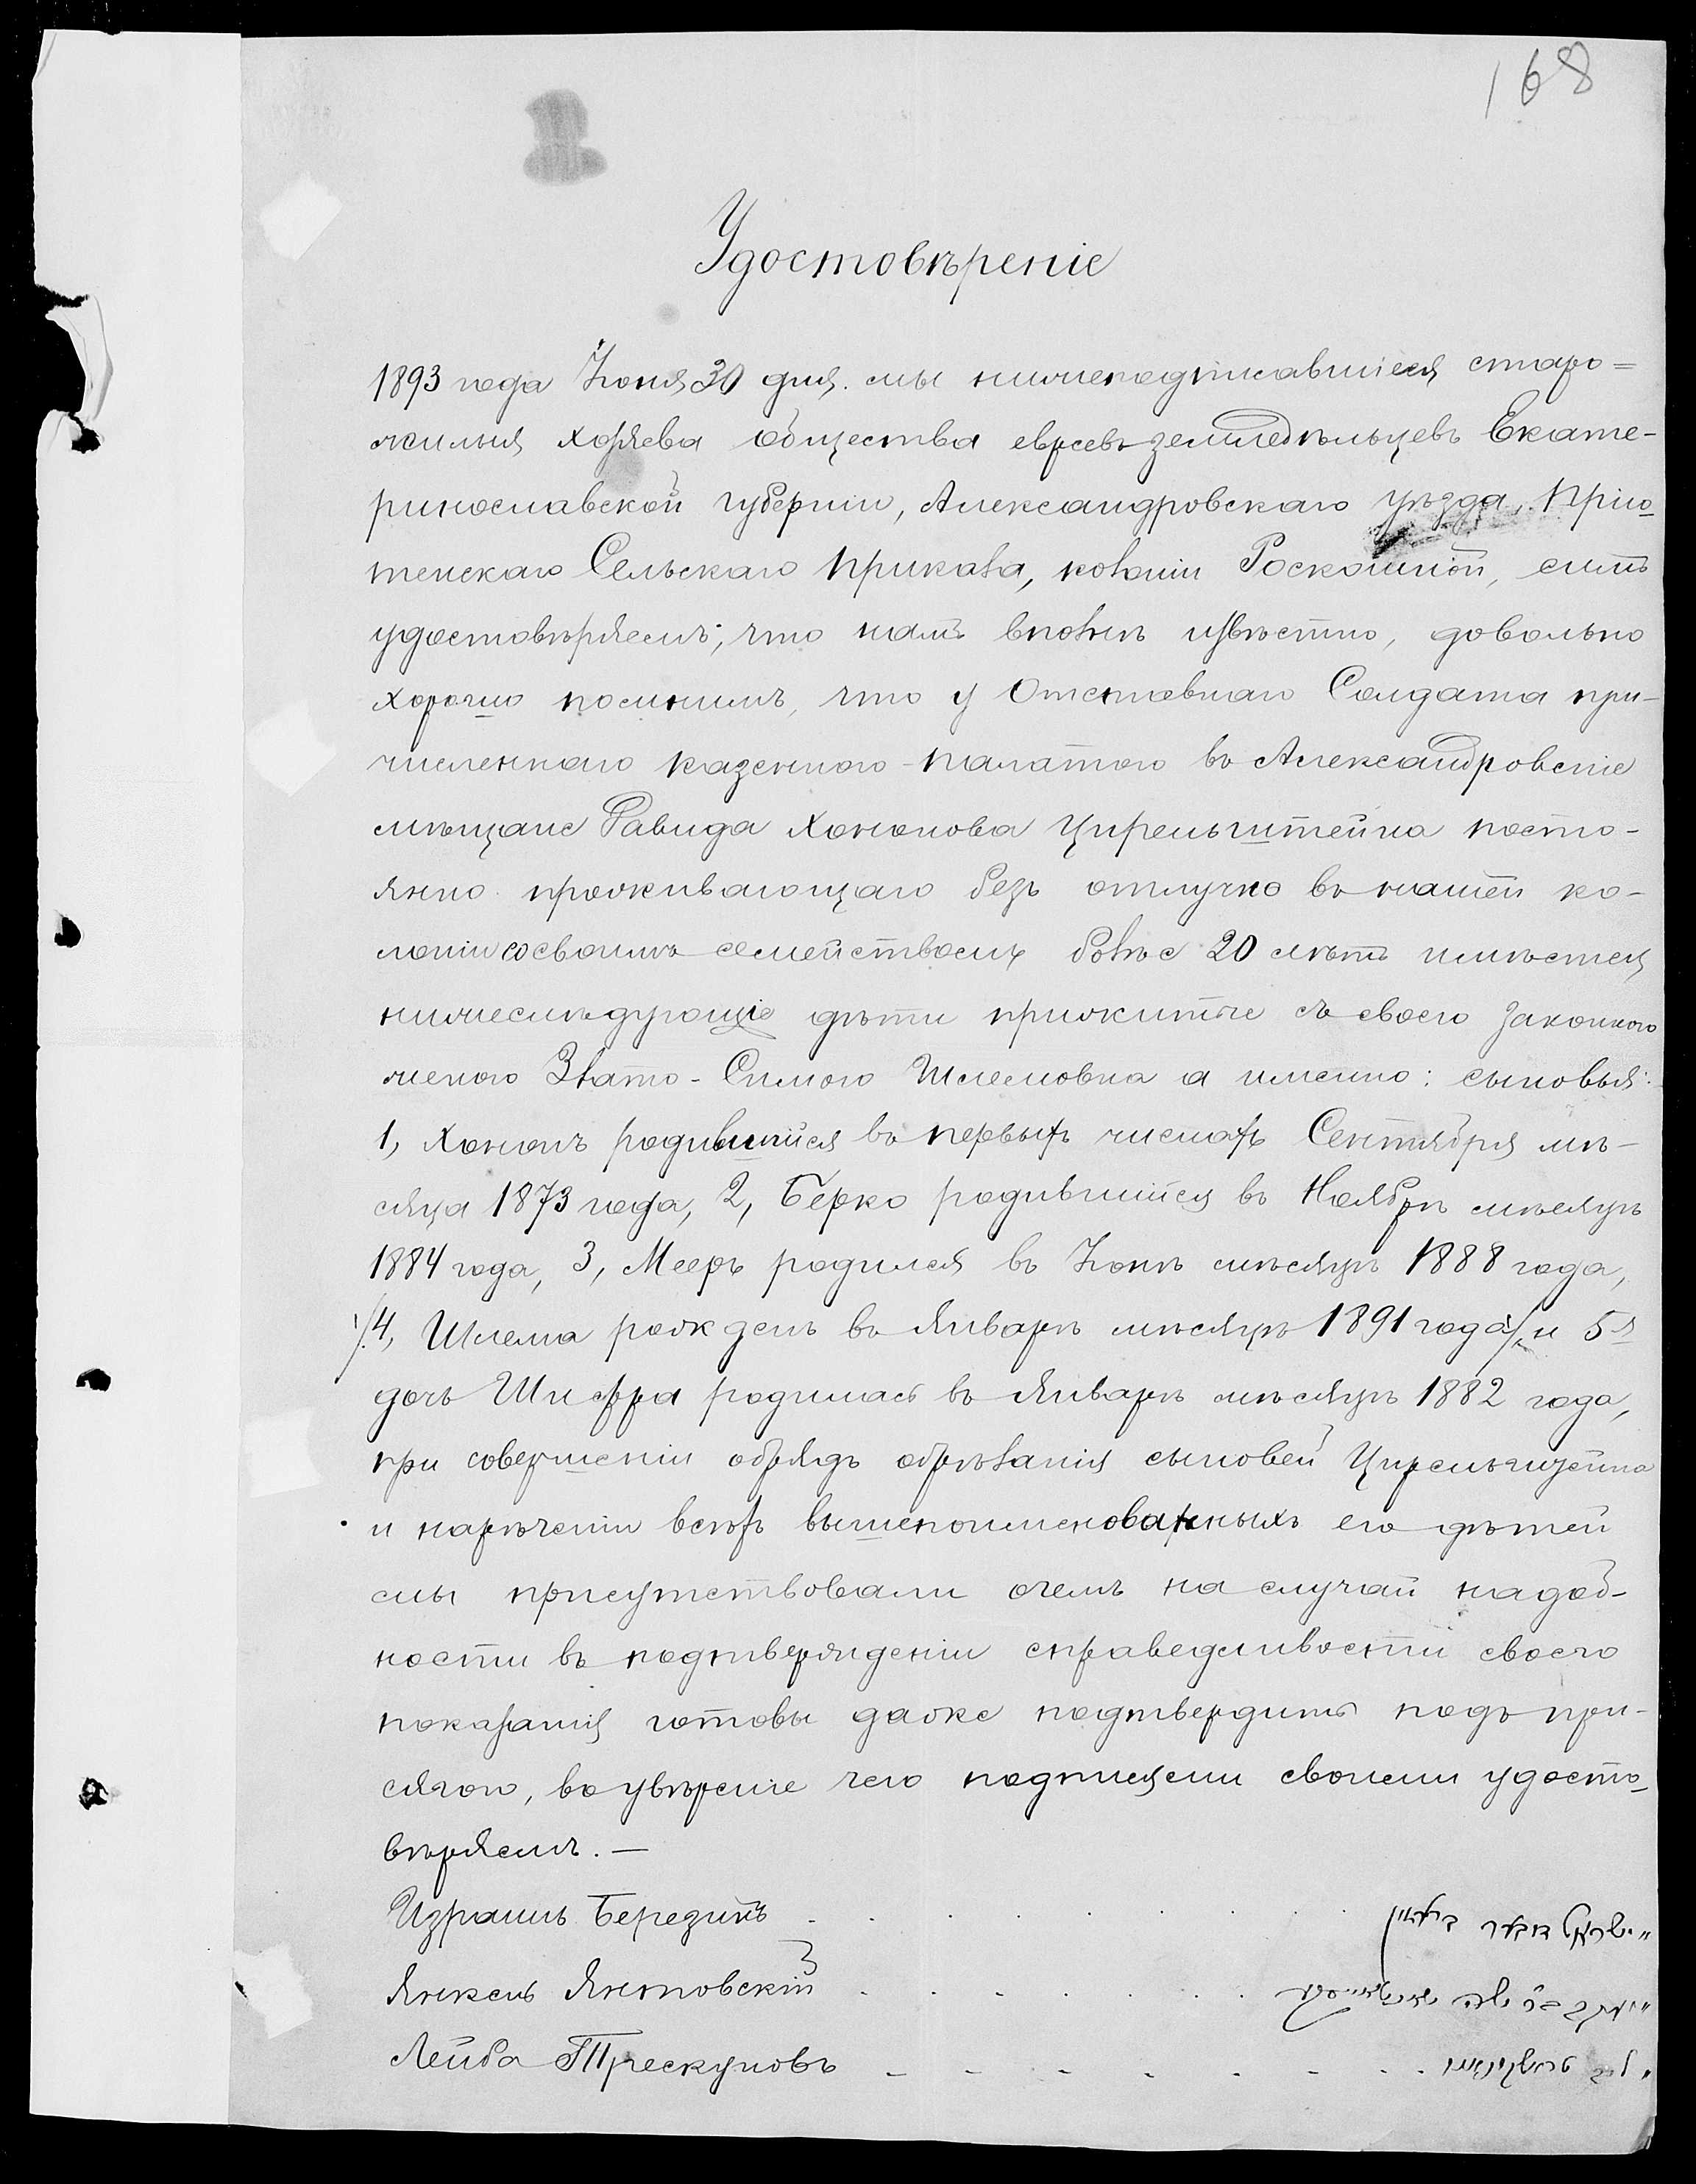 168
Удостовѣреніе
1893 года Іюня 30 дня. мы нижеподписавшіеся старо=
жилыя хозяева общества евреевъ земледѣльцевъ Екате-
ринославской губерніи, Александровскаго уѣзда, Прию-
тенскаго Сельскаго приказа, колоніи Роскошной, симъ
удостовѣряемъ, что намъ вполнѣ извѣстно, довольно
хорошо помнимъ, что у Отставнаго Солдата при-
численнаго казенною-палатою въ Александровскіе
мѣщане Давида Хононова Цирельштейна посто-
янно проживающаго безъ отлучко въ нашей ко-
лоніи со своимъ семействомъ болѣе 20 лѣтъ имѣется
нижеслѣдующіе дѣти прижитые съ своего законною
женою Злато-Симою Шлемовна а именно: сыновья:
1, Хононъ родившійся въ первыхъ числахъ Сентября мѣ-
сяца 1873 года, 2, Берко родившійся въ Ноябрѣ мѣсяцѣ
1884 года, 3, Мееръ родился въ Іюнѣ мѣсяцѣ 1888 года,
4, Шлема рожденъ въ Январѣ мѣсяцѣ 1891 года и 5я
дочь Шифра родилась въ Январѣ мѣсяцѣ 1882 года,
при совершеніи обрядъ обрѣзанія сыновей Цирельштейна
и нареченіи всѣхъ вышепоименованныхъ его дѣтей
мы присутствовали очемъ на случай надоб-
ности въ подтвержденіи справедливости своего
показанія готовы даже подтвердить подъ при-
сягою, во увѣреніе чего подписями своими удосто-
вѣряемъ.—
Израиль Березинъ
Янкель Янтовскій
Лейба Трескуновъ